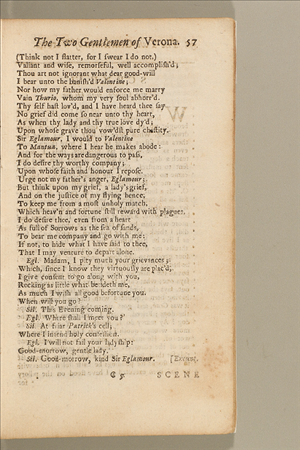 The Two Gentlemen of Verona. 57
(Think not I flatter, for I swear I do not.)
Valiant and wise, remorseful, well accomplish'd;
Thou art not ignorant what dear good-will
I bear unto the banish'd Valentine;
Nor how my father would enforce me marry
Vain Thurio, whom my very soul abhorr'd.
Thy self hast lov'd, and I have heard thee say,
No grief did come so near unto thy heart,
As when thy lady and thy true love dy'd;
Upon whose grave thou vow'dst pure chastity.
Sir Eglamour, I would to Valentine
To Mantua, where I hear he makes abode:
And for the ways are dangerous to pass,
I do desire thy worthy company;
Upon whose faith and honour I repose.
Urge not my father's anger, Eglamour;
But think upon my grief, a lady's grief,
And on the justice of my flying hence,
To keep me from a most unholy match,
Which heav'n and fortune still reward with plagues.
I do desire thee, even from a heart
As full of Sorrows as the sea of sands,
To bear me company and go with me:
If not, to hide what I have said to thee,
That I may venture to depart alone.
Egl. Madam, I pity much your grievances;
Which, since I know they virtuously are plac'd,
I give consent to go along with you,
Recking as little what betideth me,
As much I wish all good befortune you.
When will you go?
Sil. This Evening coming.
Egl. Where shall I meet you?
Sil. At friar Patrick's cell;
Where I intend holy confession.
Egl. I will not fail your ladyship:
Good-morrow, gentle lady.
Sil. Good-morrow, kind Sir Eglamour. [Exeunt.
C 5 SCENE